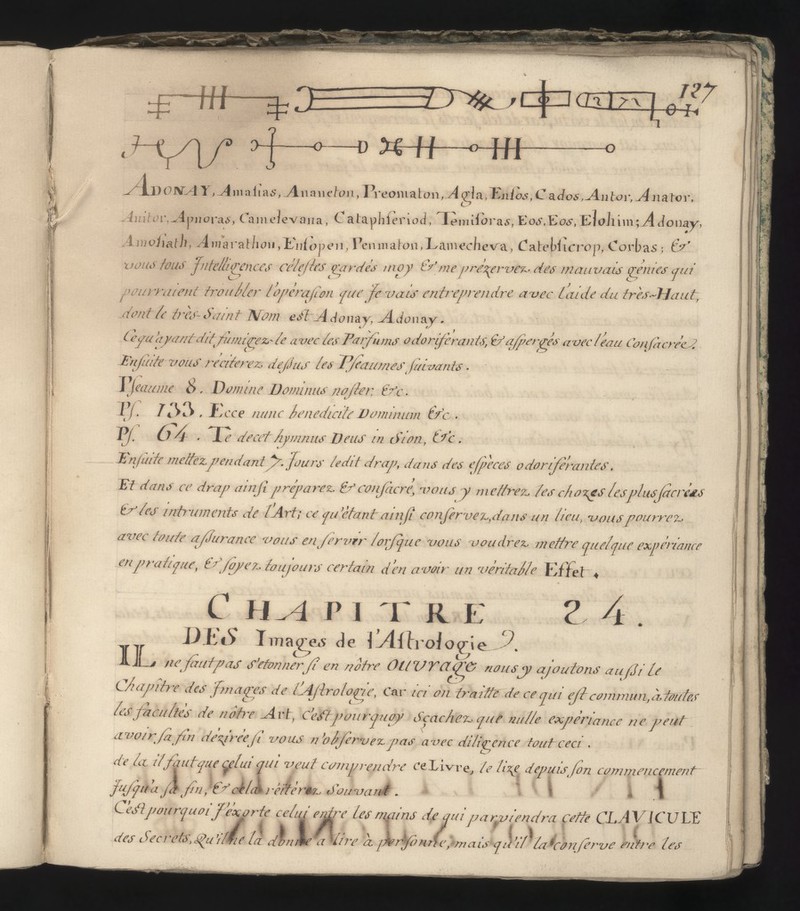 127
ADONAY, Amaſias, Ananeton, Preomaton, Agla, Enſos, Cados, Antor, Anator,
Anitor, Apnoras, Camelevana, Cataphſeriod, Temiſoras, Eos, Eos, Elohim; Adonay,
Amoſiath, Amarathon, Enſopen, Penmaton, Lamecheva, Catebſicrop, Corbas; &
vous tous Intelligences céleſtes gardés moy & me prézervez des mauvais génies qui
pourraient troubler l'opéraſion que Je vais entreprendre avec l'aide du très-Haut,
dont le très-Saint Nom est Adonay, Adonay.
Ce qu'ayant dit fumigez-le avec les Parfums odoriférants, & aſpergés avec l'eau Conſacrée.
Enſuite vous réciterez deſſus les Pſeaumes ſuivants.
Pſeaume 8. Domine Dominus noſter. &c.
Pſ. 133. Ecce nunc benedicite Dominum &c.
Pſ. 64. Te decet hymnus Deus in Sion, &c.
Enſuite mettez pendant 7. Jours ledit drap, dans des eſpèces odoriférantes.
Et dans ce drap ainſi préparez & conſacré, vous y mettrez les chozes les plus ſacrées
& les intruments de l'Art; ce qu'étant ainſi conſervez, dans un lieu, vous pourrez
avec toute aſſurance vous en ſervir lorſque vous voudrez mettre quelque expériance
en pratique, & ſoyez toujours certain d'en avoir un véritable Effet.
CHAPITRE 24.
DES Images de l'Aſtrologie.
IL ne faut pas s'etonner ſi en nôtre OUVRAGE nous y ajoutons auſſi le
Chapître des Images de l'Aſtrologie, car ici on traitte de ce qui eſt commun, à toutes
les facultés de nôtre Art, C'est pourquoy Sçachez que nulle expériance ne peut
avoir ſa fin dézirée ſi vous n'obſervez pas avec diligence tout ceci.
de la il faut que celui qui veut comprendre ce Livre, le lize depuis ſon commencement
Juſqu'à ſa fin, & cela réitérez Souvant.
C'est pourquoi J'éxorte celui entre les mains de qui parviendra cette CLAVICULE
des Secrets, Qu'il ne la donne a lire à perſonne, mais qu'il la conſerve entre les